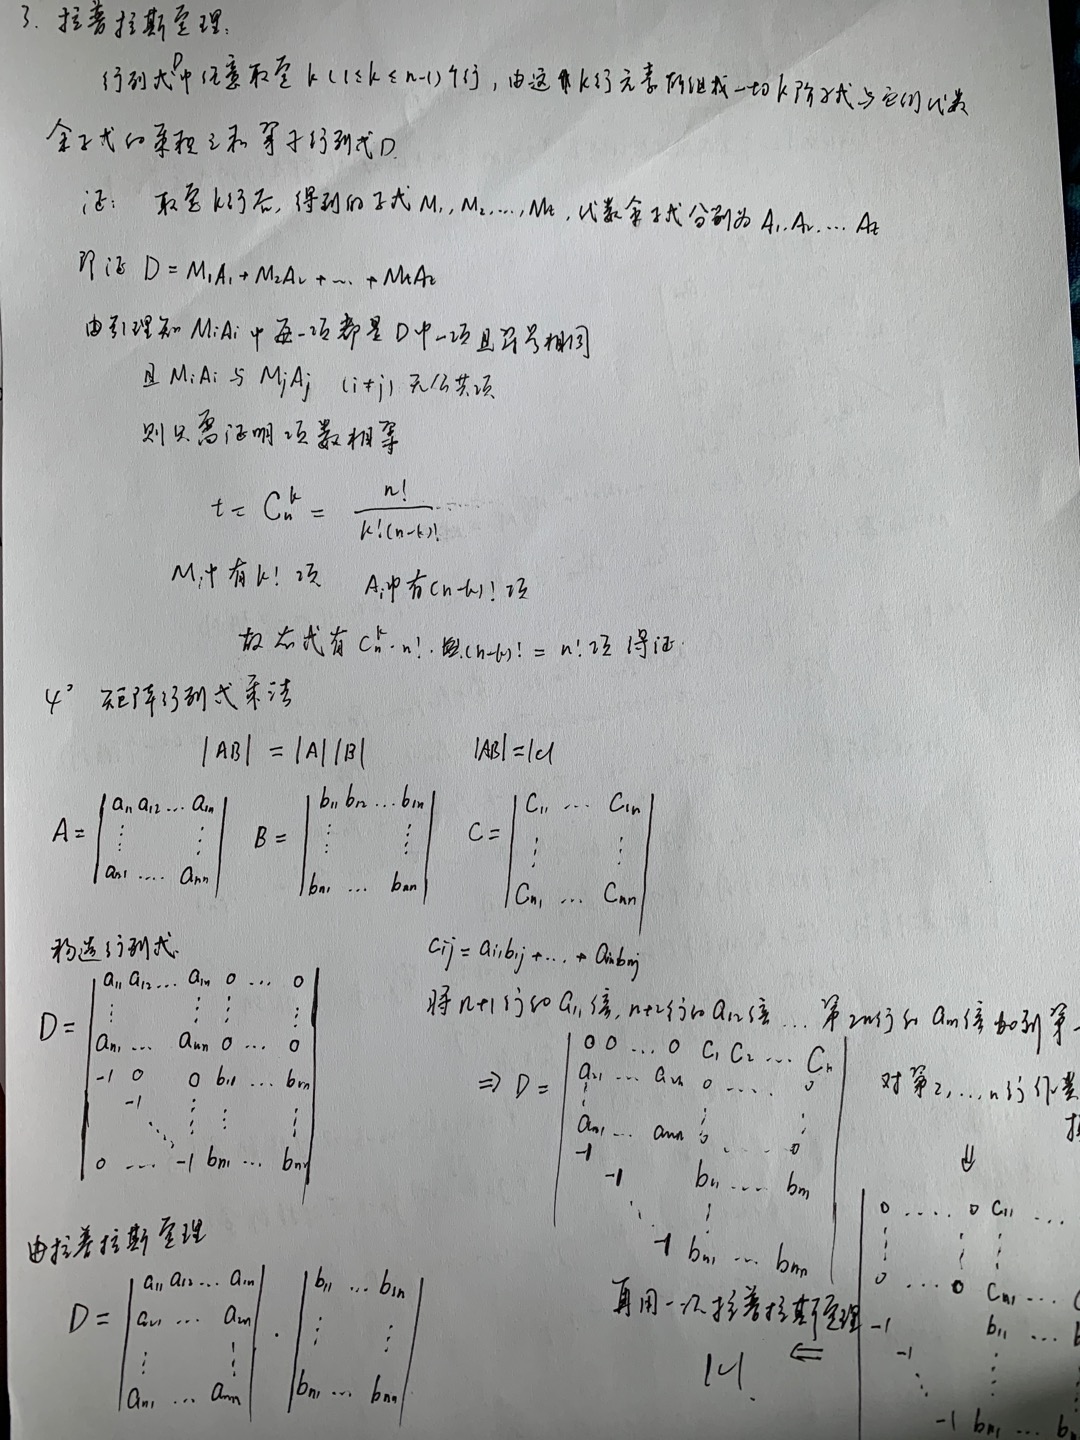 3. 拉普拉斯定理:
行列式D中任意取定k(1≤k≤n-1)个行，由这k行元素所组成一切k阶子式与它的代数
余子式的乘积之和等于行列式D.
证： 取定k行后，得到的子式M₁, M₂, ..., Mt, 代数余子式分别为A₁. A₂. ... At
即证 D = M₁A₁ + M₂A₂ + ... + MtAt
由引理知 MiAi中每一项都是D中一项且符号相同
且 MiAi 与 MjAj (i≠j) 无公共项
则只需证明项数相等
t = Cₙᵏ = n! / k!(n-k)!
Mi中有k! 项 Ai中有(n-k)! 项
故右式有 Cₙᵏ · n! · (n-k)! = n! 项 得证.
4° 矩阵行列式乘法
|AB| = |A||B| |AB| = |C|
A = | a₁₁ a₁₂ ... a₁ₙ | B = | b₁₁ b₁₂ ... b₁ₙ | C = | c₁₁ ... c₁ₙ |
⋮ ⋮ ⋮ ⋮ ⋮ ⋮
aₙ₁ .... aₙₙ bₙ₁ ... bₙₙ cₙ₁ ... cₙₙ
构造行列式.
D =
a₁₁ a₁₂ ... a₁ₙ 0 ... 0
⋮ ⋮ ⋮ ⋮
aₙ₁ ... aₙₙ 0 ... 0
-1 0 0 b₁₁ ... b₁ₙ
-1 ⋮ ⋮ ⋮
0 ... -1 bₙ₁ ... bₙₙ
cij = ai₁b₁j + ... + aiₙbₙj
将n+1行的a₁₁倍, n+2行的a₁₂倍 ... 第2n行的a₁ₙ倍加到第一
⇒ D =
0 0 ... 0 C₁ C₂ ... Cₙ
a₂₁ ... a₂ₙ 0 .... 0
⋮ ⋮ ⋮
aₙ₁ ... aₙₙ 0 ... 0
-1
-1 b₁₁ .... b₁ₙ
⋱ ⋮
-1 bₙ₁ ... bₙₙ
对第2, ..., n行作类
⇓
0 ..... 0 c₁₁ ...
⋮ ⋮ ⋮
0 ... 0 cₙ₁ ...
-1 b₁₁ ...
-1 ⋮
⋱
-1 bₙ₁ ...
再用一次拉普拉斯定理
⇐
|C|.
由拉普拉斯定理
D = | a₁₁ a₁₂ ... a₁ₙ | · | b₁₁ ... b₁ₙ |
a₂₁ ... a₂ₙ ⋮ ⋮
⋮ ⋮
aₙ₁ ... aₙₙ bₙ₁ ... bₙₙ